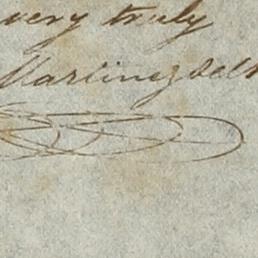 very truly
Martinez del